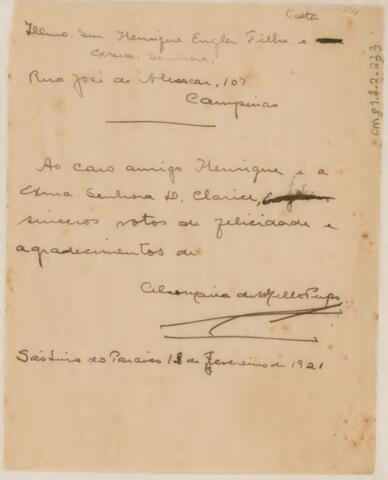 Carta
Illmo. Snr. Henrique Engler Filho e
Exma. Senhora.
Rua José de Alencar, 107
Campinas
cmp1.2.2.233
Ao caro amigo Henrique e a
Exma. Senhora D. Clarice,
sinceros votos de felicidade e
agradecimentos de
Celso Maria de Mello Pupo
São Luis do Paraiso 18 de Fevereiro de 1921